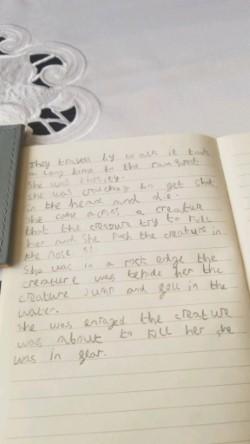 They travel by walk it took
a long time to the rainforest
She was thirsty.
She was crouching to get shot
in the head and die.
She came across a creature
that the creature try to kill
her and she push the creature in
the nose !!
She was in a rock edge the
creature was behide her the
creature jump and fell in the
water.
She was enraged the creature
was about to kill her she
was in fear.